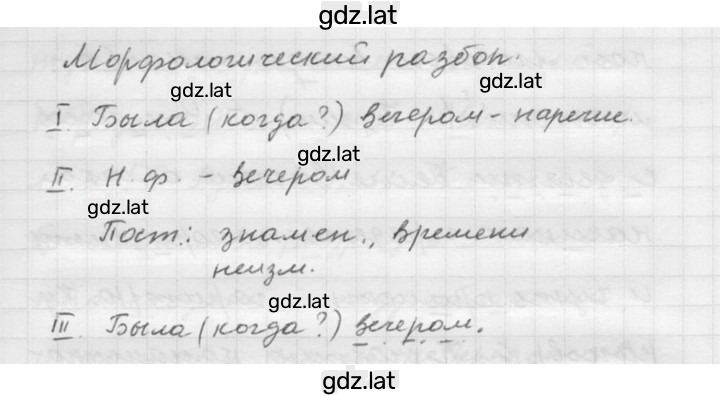 gdz.lat
Морфологический разбор.
gdz.lat
gdz.lat
I. Была (когда?) вечером - наречие.
gdz.lat
II. Н. ф. - вечером
gdz.lat
Пост.: знамен., времени
неизм.
gdz.lat
III. Была (когда?) вечером.
gdz.lat